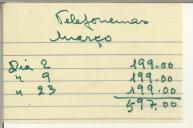 Telefonemas
Março
Dia 2 199.00
" 9 199.00
" 23 199.00
597.00